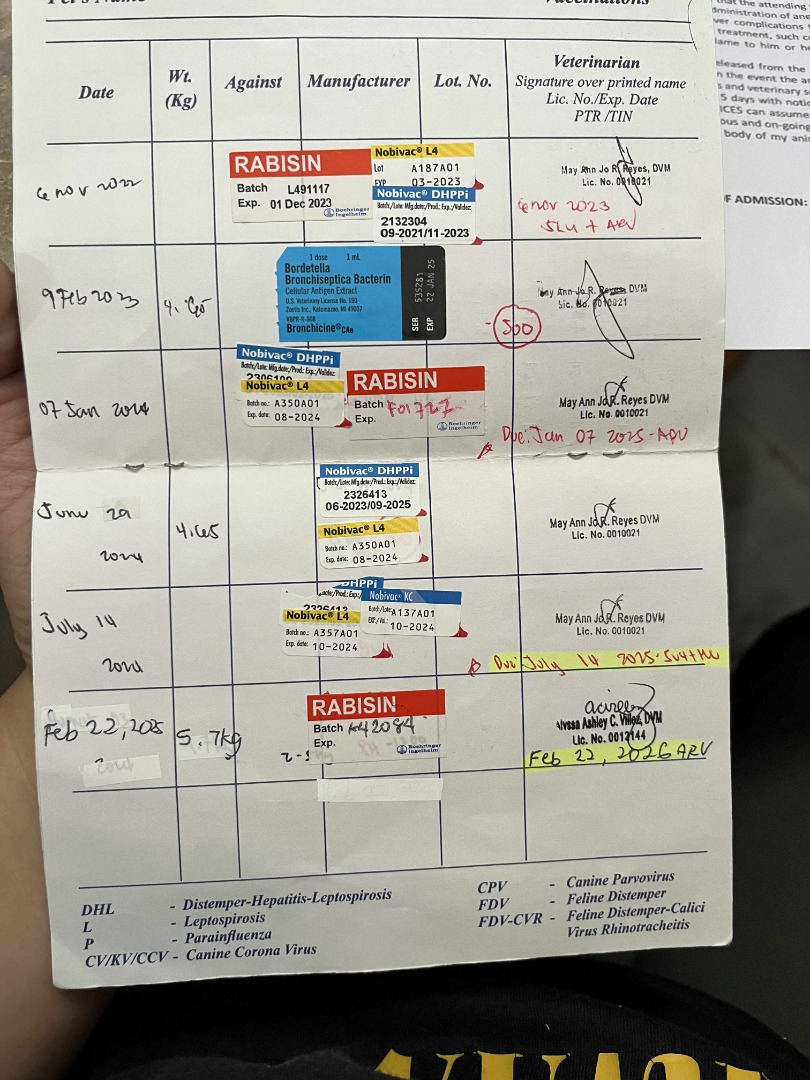 Pet's Name
Vaccinations
Date
Wt.
(Kg)
Against
Manufacturer
Lot. No.
Veterinarian
Signature over printed name
Lic. No./Exp. Date
PTR /TIN
6 nov 2022
RABISIN
Batch L491117
Exp. 01 Dec 2023
Boehringer
Ingelheim
Nobivac® L4
Lot A187A01
EXP 03-2023
Nobivac® DHPPi
Batch/Lote: Mfg.date/Prod.: Exp.:/Validez:
2132304
09-2021/11-2023
May Ann Jo R. Reyes, DVM
Lic. No. 0010021
6 nov 2023
5L4 + ARV
9 Feb 2023
1 dose 1 mL
Bordetella
Bronchiseptica Bacterin
Cellular Antigen Extract
U.S. Veterinary License No. 190
Zoetis Inc., Kalamazoo, MI 49007
VBPR-R-508
Bronchicine® CAe
SER 535281
EXP 22 JAN 25
May Ann Jo R. Reyes DVM
Lic. No. 0010021
500
07 Jan 2024
Nobivac® DHPPi
Batch/Lote: Mfg.date/Prod.: Exp.:/Validez:
Nobivac® L4
Batch no.: A350A01
Exp. date: 08-2024
RABISIN
Batch F01727
Exp.
Boehringer
Ingelheim
May Ann Jo R. Reyes DVM
Lic. No. 0010021
Due: Jan 07 2025 - ARV
June 29
2024
4.65
Nobivac® DHPPi
Batch/Lote: Mfg.date/Prod.: Exp.:/Validez:
2326413
06-2023/09-2025
Nobivac® L4
Batch no.: A350A01
Exp. date: 08-2024
May Ann Jo R. Reyes DVM
Lic. No. 0010021
July 14
2024
DHPPi
2326413
Nobivac® L4
Batch no.: A357A01
Exp. date: 10-2024
Nobivac® KC
Batch/Lote: A137A01
EXP./Val.: 10-2024
May Ann Jo R. Reyes DVM
Lic. No. 0010021
Due: July 14 2025
Feb 22, 2025
2024
5.7kg
RABISIN
Batch
Exp.
Boehringer
Ingelheim
Alyssa Ashley C. DVM
Lic. No. 0012144
Feb 22, 2026 ARV
DHL - Distemper-Hepatitis-Leptospirosis
L - Leptospirosis
P - Parainfluenza
CV/KV/CCV - Canine Corona Virus
CPV - Canine Parvovirus
FDV - Feline Distemper
FDV-CVR - Feline Distemper-Calici
Virus Rhinotracheitis
that the attending
administration of
treatment, such
to him or
released from the
in the event the
and veterinary
5 days with
can assume
and on-going
body of my
F ADMISSION: